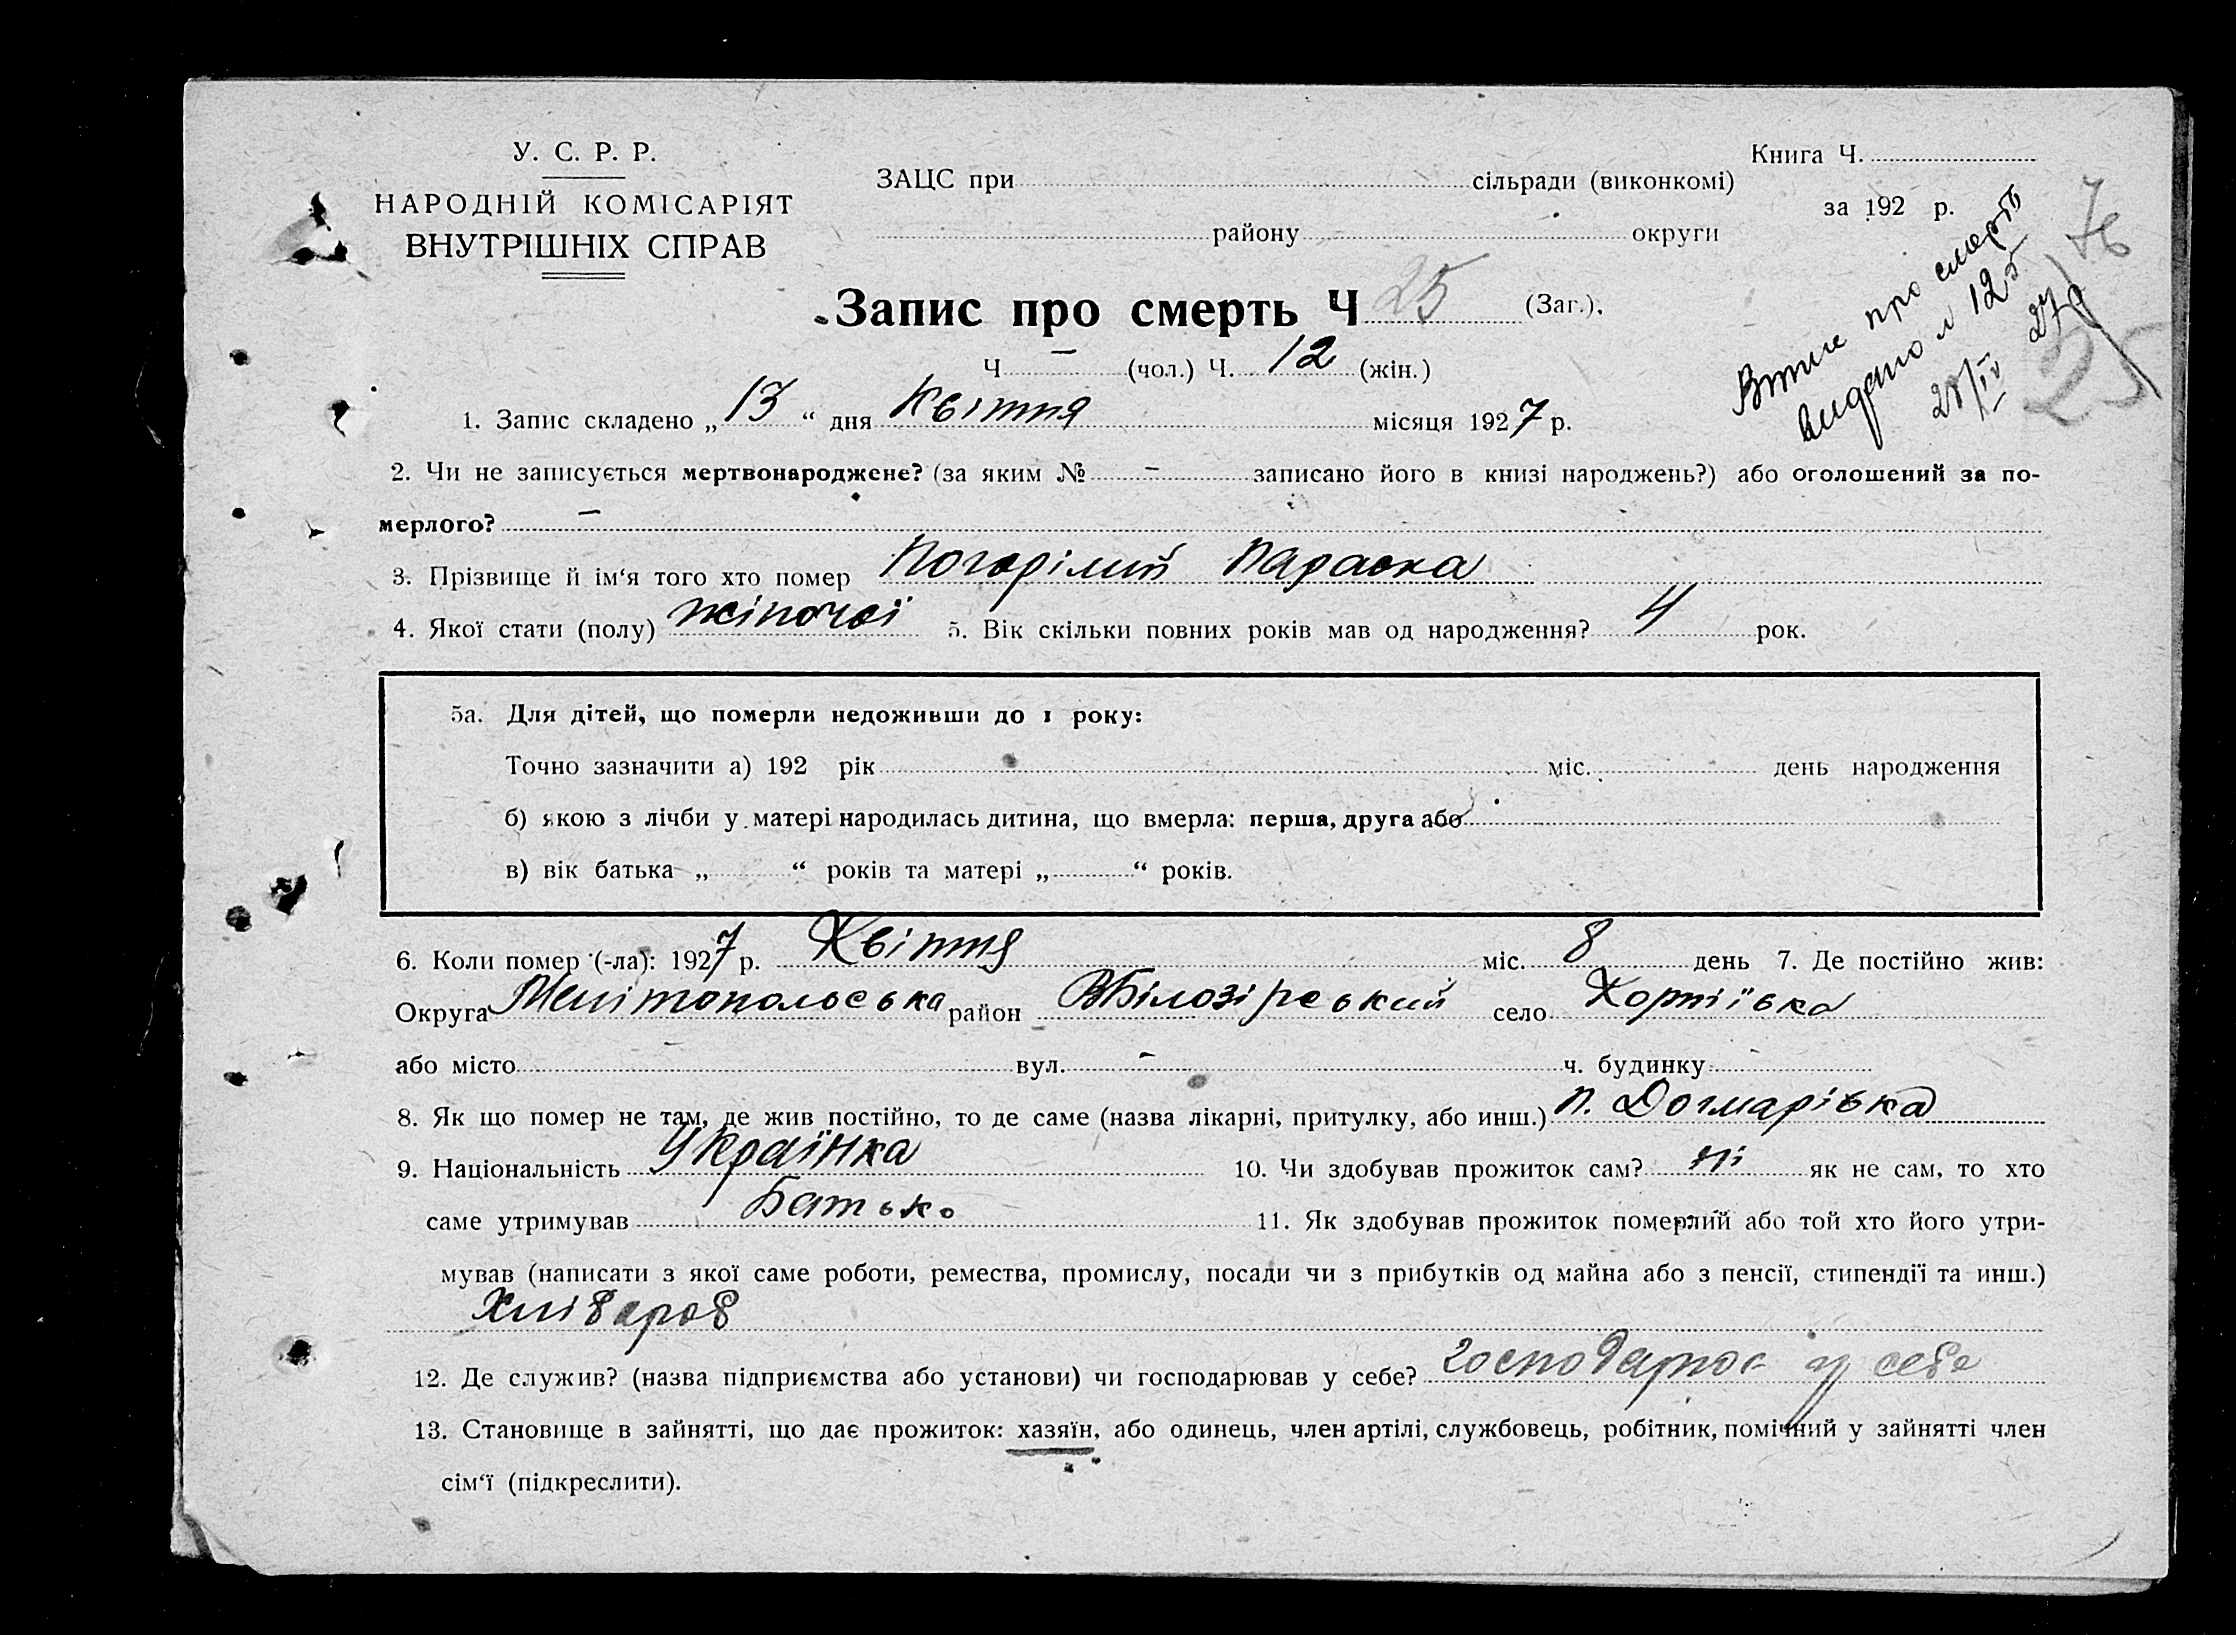 У. С. Р. Р.
НАРОДНІЙ КОМІСАРІЯТ
ВНУТРІШНІХ СПРАВ
ЗАЦС при сільради (виконкомі)
району округи
Книга Ч.
за 192 р.
76
Запис про смерть Ч 25 (Заг.).
Ч – (чол.) Ч. 12 (жін.)
про смерть
видано
25
1. Запис складено „ 13 “ дня Квітня місяця 1927 р.
2. Чи не записується мертвонароджене? (за яким № – записано його в книзі народжень?) або оголошений за по-
мерлого? –
3. Прізвище й ім‘я того хто помер Погорілий Параска
4. Якої стати (полу) жіночої 5. Вік скільки повних років мав од народження? 4 рок.
5а. Для дітей, що померли недоживши до 1 року:
Точно зазначити а) 192 рік міс. день народження
б) якою з лічби у матері народилась дитина, що вмерла: перша, друга або
в) вік батька „ “ років та матері „ “ років.
6. Коли помер (-ла): 1927 р. Квітня міс. 8 день 7. Де постійно жив:
Округа Мелітопольська район ВБілозірський село
або місто вул. – ч. будинку –
8. Як що помер не там, де жив постійно, то де саме (назва лікарні, притулку, або инш.) п. Догмарівка
9. Національність Українка 10. Чи здобував прожиток сам? ні як не сам, то хто
саме утримував Батько 11. Як здобував прожиток померлий або той хто його утри-
мував (написати з якої саме роботи, ремества, промислу, посади чи з прибутків од майна або з пенсії, стипендії та инш.)
Хлібароб
12. Де служив? (назва підприємства або установи) чи господарював у себе? у себе
13. Становище в зайнятті, що дає прожиток: хазяїн, або одинець, член артілі, службовець, робітник, помічний у зайнятті член
сім‘ї (підкреслити).